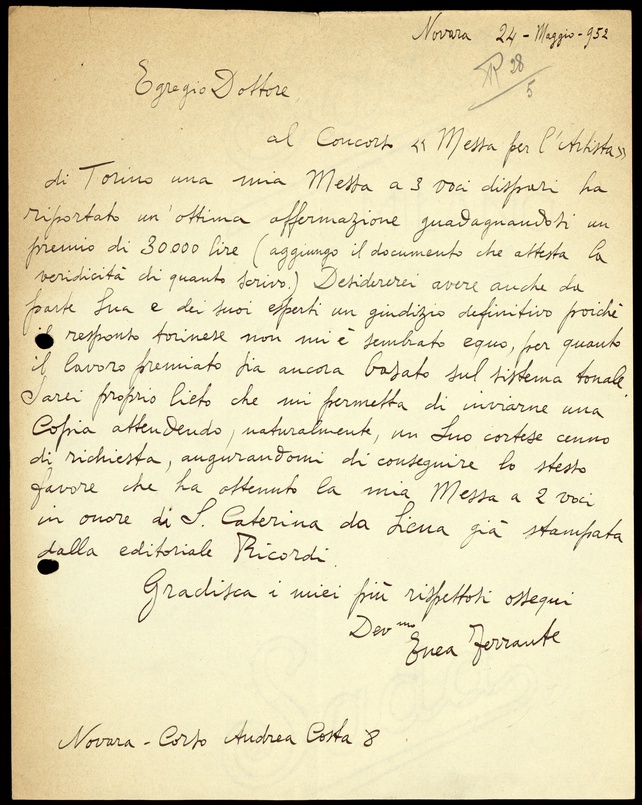 Novara 24 - Maggio - 952
R 28
5
Egregio Dottore,
al Concorso « Messa per l'Artista »
di Torino una mia Messa a 3 voci dispari ha
riportato un'ottima affermazione guadagnandosi un
premio di 30.000 lire (aggiungo il documento che attesta la
veridicità di quanto scrivo.) Desidererei avere anche da
parte Sua e dei suoi esperti un giudizio definitivo poichè
il responso torinese non mi è sembrato equo, per quanto
il lavoro premiato sia ancora basato sul sistema tonale.
Sarei proprio lieto che mi permetta di inviarne una
Copia attendendo, naturalmente, un Suo cortese cenno
di richiesta, augurandomi di conseguire lo stesso
favore che ha ottenuto la mia Messa a 2 voci
in onore di S. Caterina da Siena già stampata
dalla editoriale Ricordi.
Gradisca i miei più rispettosi ossequi
Dev mo
Enea Ferrante
Novara - Corso Andrea Costa 8